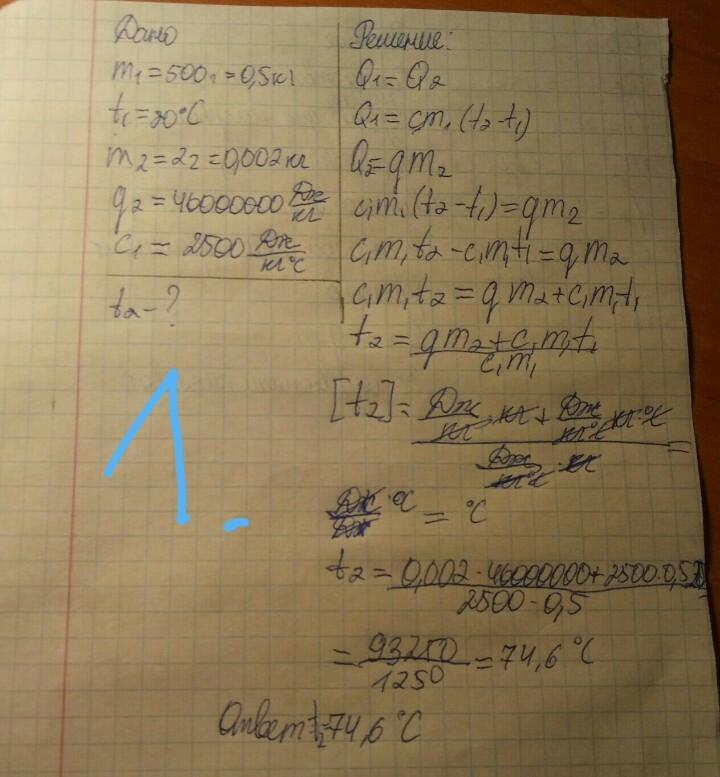 Дано
m₁=500г=0,5кг
t₁=20°C
m₂=2г=0,002кг
q₂=46000000 Дж/кг
c₁=2500 Дж/кг°C
t₂-?
1.
Решение:
Q₁=Q₂
Q₁=cm₁(t₂-t₁)
Q₂=qm₂
c₁m₁(t₂-t₁)=qm₂
c₁m₁t₂-c₁m₁t₁=qm₂
c₁m₁t₂=qm₂+c₁m₁t₁
t₂=qm₂+c₁m₁t₁
c₁m₁
[t₂]=Дж/кг·кг+Дж/кг°C·кг·°C
Дж/кг°C·кг =
Дж·°C/Дж=°C
t₂=0,002·46000000+2500·0,5·20
2500·0,5
=93250/1250=74,6°C
Ответ t₂=74,6°C